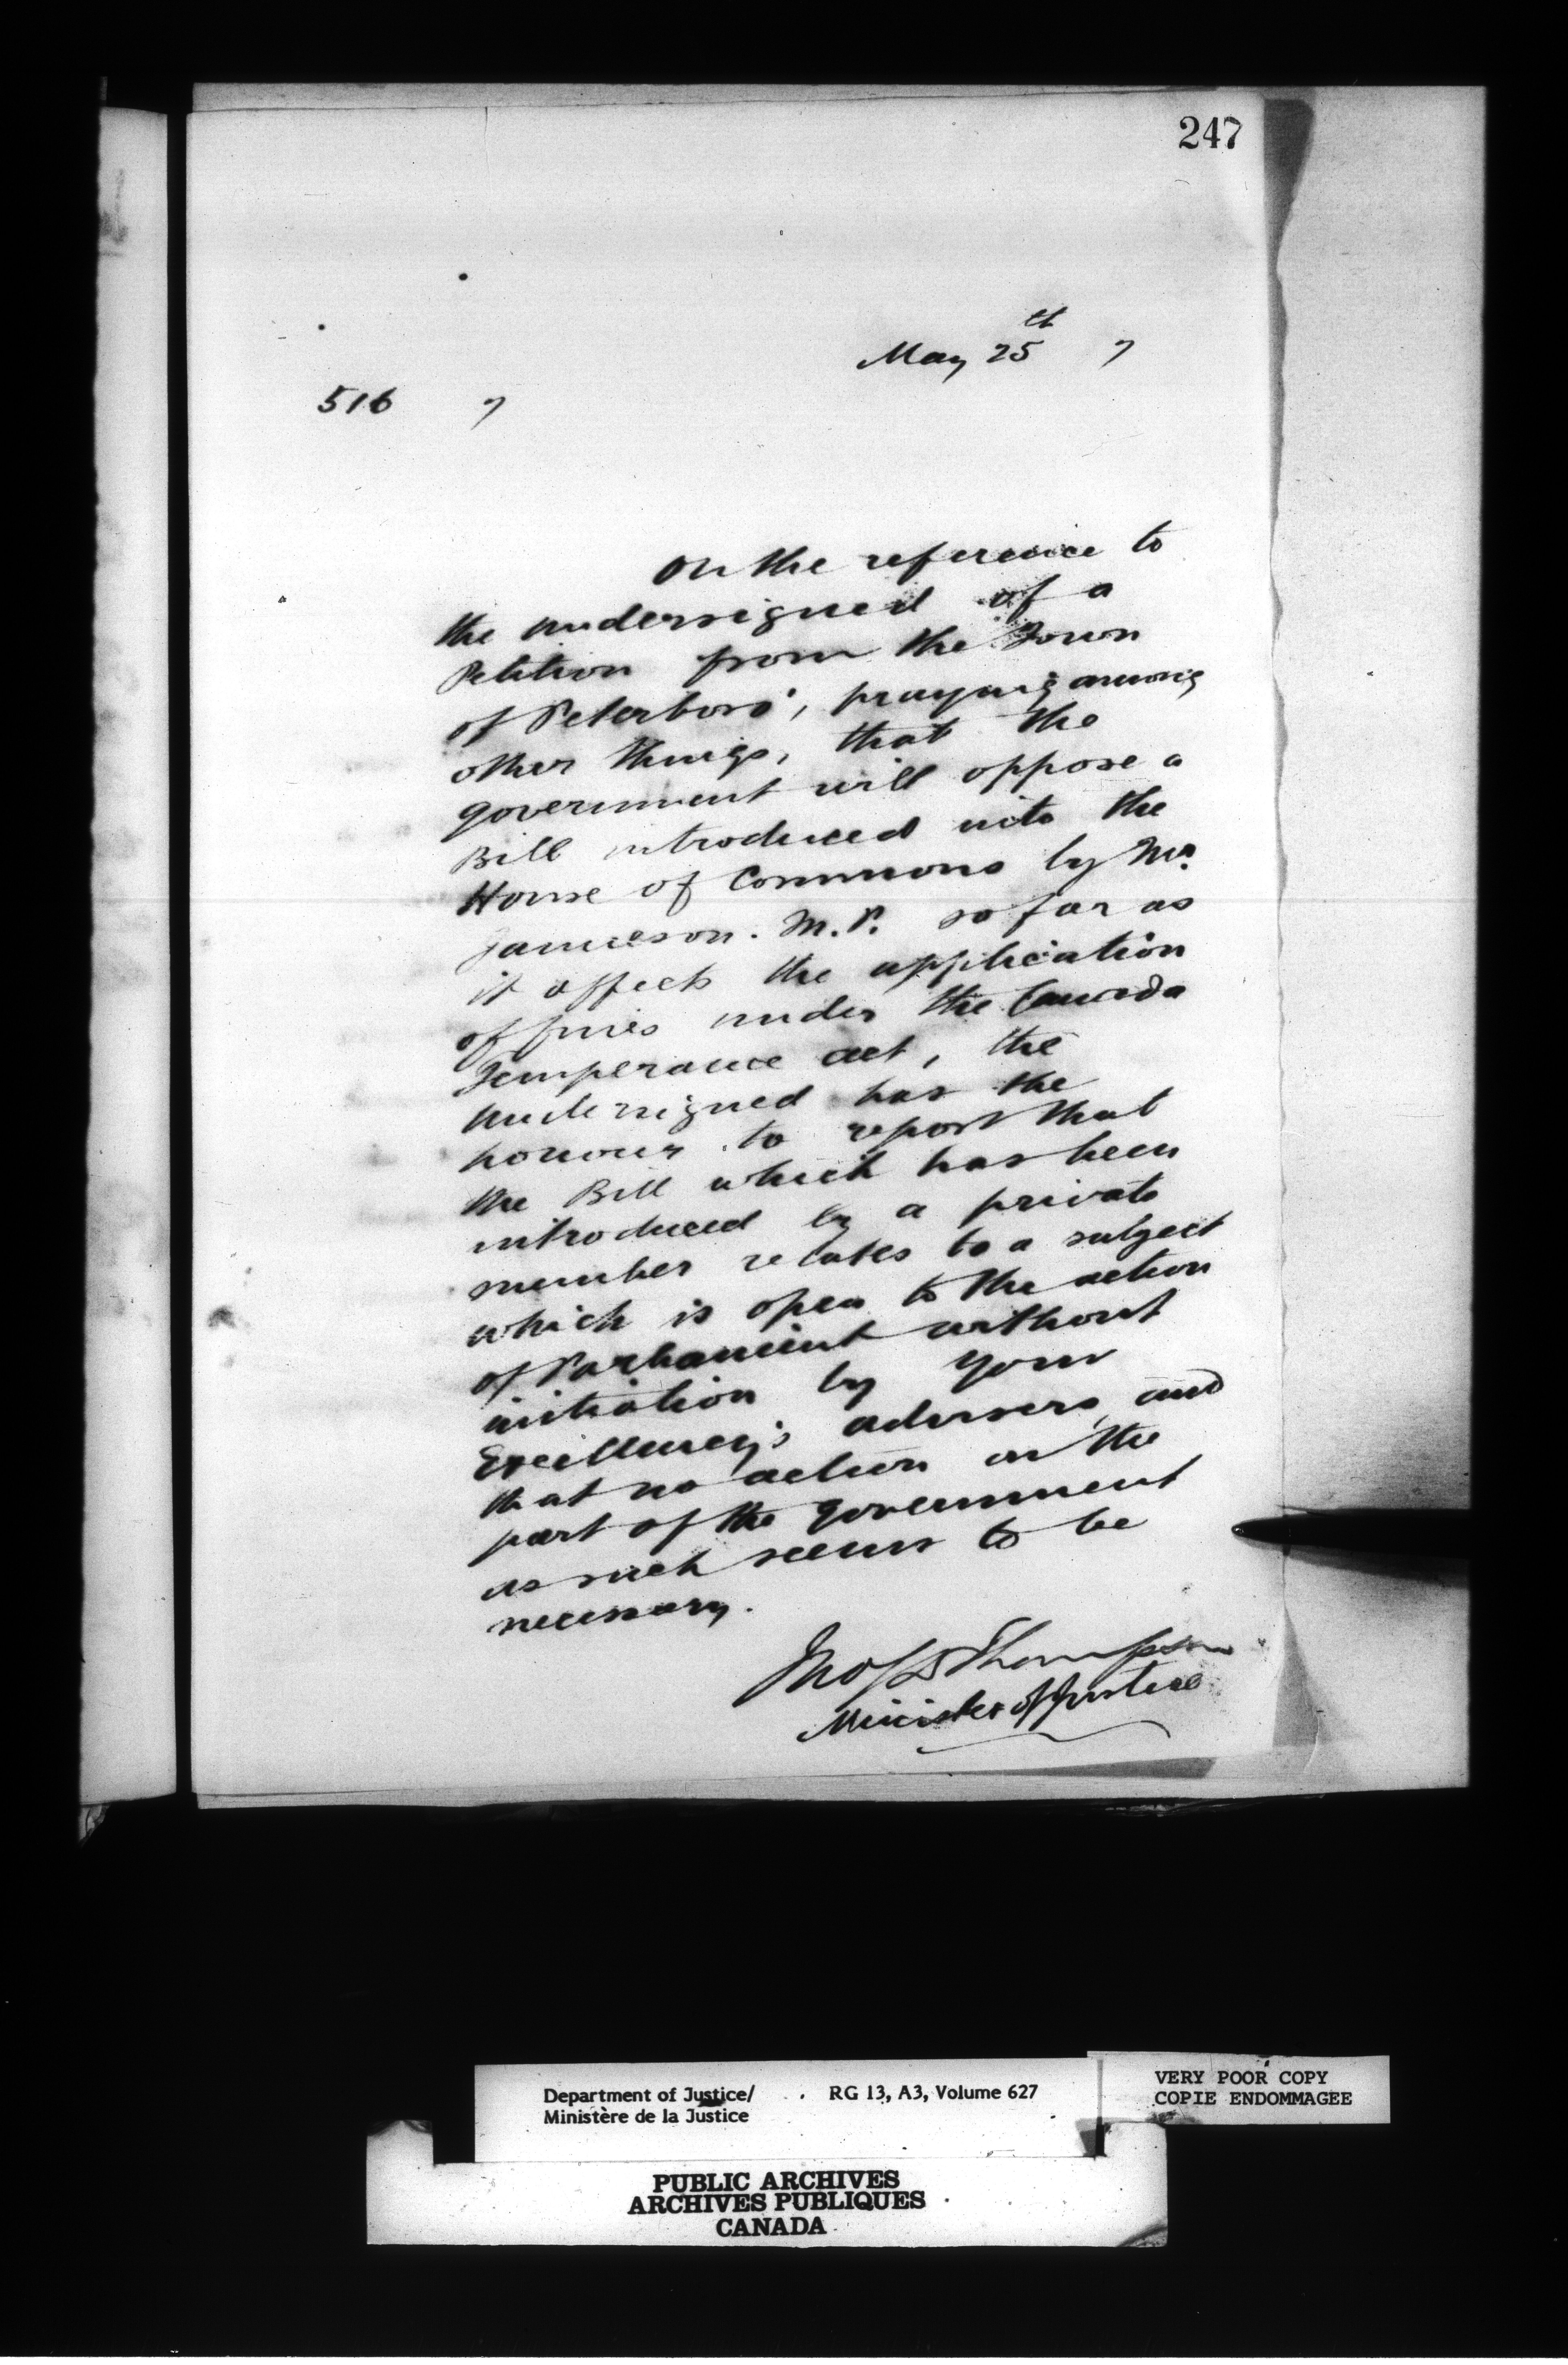 247
May 25th 7
516 7
On the reference to
the undersigned of a
Petition from the Town
of Peterboro', praying among
other things, that the
government will oppose a
Bill introduced into the
House of Commons by Mr.
Jamieson. M.P. so far as
it affects the application
of fines under the Canada
Temperance act, the
undersigned has the
honour to report that
the Bill which has been
introduced by a private
member relates to a subject
which is open to the action
of Parliament without
initiation by Your
Excellency's advisers, and
that no action on the
part of the government
as such seems to be
necessary.
Jno S D Thompson
Minister of Justice
Department of Justice/ RG 13, A3, Volume 627
Ministère de la Justice
VERY POOR COPY
COPIE ENDOMMAGEE
PUBLIC ARCHIVES
ARCHIVES PUBLIQUES
CANADA